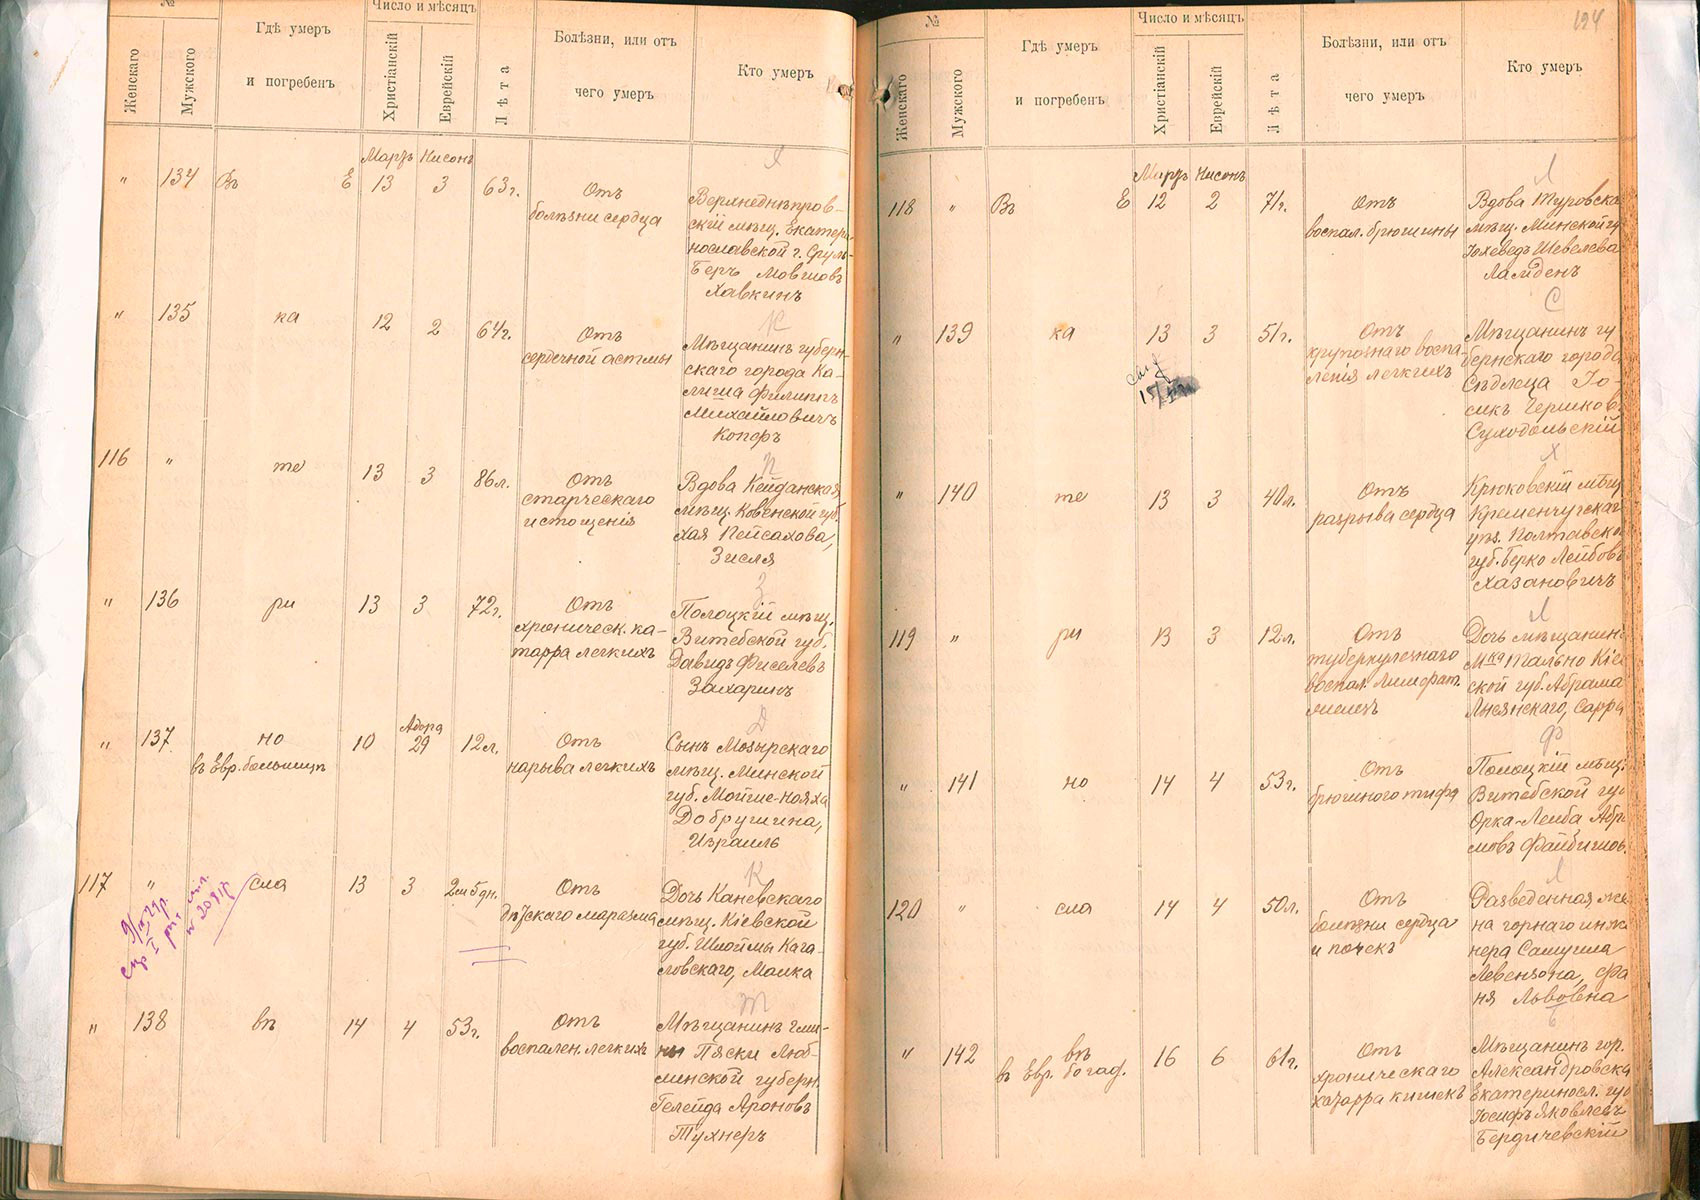 №
Женскаго
Мужского
Гдѣ умеръ
и погребенъ
Число и мѣсяцъ
Христіанскій
Еврейскій
Лѣта
Болѣзни, или отъ
чего умеръ
Кто умеръ
Мартъ Нисонъ
Х
" 134 Въ Е 13 3 63 г.
Отъ
болѣзни сердца
Верхнеднѣпров-
скій мѣщ. Екатери-
нославской г. Сруль-
Беръ Мовшовъ
Хавкинъ
" 135 ка 12 2 64 г.
Отъ
сердечной астмы
К
Мѣщанинъ губерн-
скаго города Ка-
лиша Филиппъ
Михайловичъ
Копфъ
116 " те 13 3 86 л.
Отъ
старческаго
истощенія
Вдова Кейданская
мѣщ. Ковенской губ.
Хая Пейсахова,
Зисля
" 136 ри 13 3 72 г.
Отъ
хроническ. ка-
тарра легкихъ
З
Полоцкій мѣщ.
Витебской губ.
Давидъ Фиселевъ
Захаринъ
" 137 но
въ Евр. больницѣ
10
Адара
29
12 л.
Отъ
нарыва легкихъ
Д
Сынъ Мозырскаго
мѣщ. Минской
губ. Мойше-Нояха
Добрушина,
Израиль
117 " сла 13 3 2 м 5 дн.
Отъ
дѣтскаго маразма
К
Дочь Каневскаго
мѣщ. Кіевской
губ. Шлоймы Кага-
ловскаго, Малка
" 138 въ 14 4 53 г.
Отъ
воспален. легкихъ
Т
Мѣщанинъ гми-
ны Пяски Люб-
линской губерн.
Гелейда Ароновъ
Тухнеръ
194
№
Женскаго
Мужского
Гдѣ умеръ
и погребенъ
Число и мѣсяцъ
Христіанскій
Еврейскій
Лѣта
Болѣзни, или отъ
чего умеръ
Кто умеръ
Мартъ Нисонъ
Л
118 " Въ Е 12 2 71 г.
Отъ
воспал. брюшины
Вдова Туровска
мѣщ. Минской гу
Іохеведъ Шевелева
Ламденъ
С
" 139 ка 13 3 51 г.
Отъ
крупознаго воспа-
ленія легкихъ
Мѣщанинъ гу
бернскаго города
Сѣдлеца Іо-
сикъ Гершков
Суходольскій
Х
" 140 те 13 3 40 л.
Отъ
разрыва сердца
Крюковскій мѣщ
Кременчугскаг
уѣз. Полтавско
губ. Берко Лейбовъ
Хазановичъ
Л
119 " ри 13 3 12 л.
Отъ
туберкулезнаго
воспал. лимфат.
желез
Дочь мѣщанина
Мка Тально Кіев
ской губ. Абрама
Лысянскаго, Сарра
Ф
" 141 но 14 4 53 г.
Отъ
брюшного тифа
Полоцкій мѣщ.
Витебской гу
Орка-Лейба Абр
мовъ Файбишов.
Л
120 " сла 14 4 50 л.
Отъ
болѣзни сердца
и почекъ
Разведенная же
на горнаго инже
нера Самуила
Левензона, Фа
ня Львовна
Б
" 142 въ
въ Евр. богад.
16 6 61 г.
Отъ
хроническаго
катарра кишекъ
Мѣщанинъ гор.
Александровска
Екатериносл. губ
Іосифъ Яковлевъ
Бердичевскій